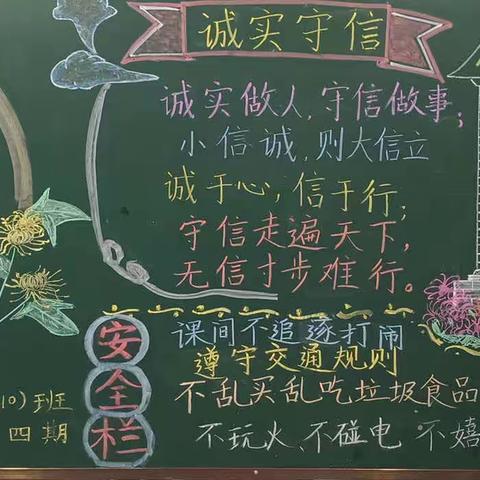 诚实守信
诚实做人,守信做事;
小信诚,则大信立
诚于心,信于行;
守信走遍天下,
无信寸步难行。
安全栏
课间不追逐打闹
遵守交通规则
不乱买乱吃垃圾食品
不玩火、不碰电 不嬉
10)班
四期